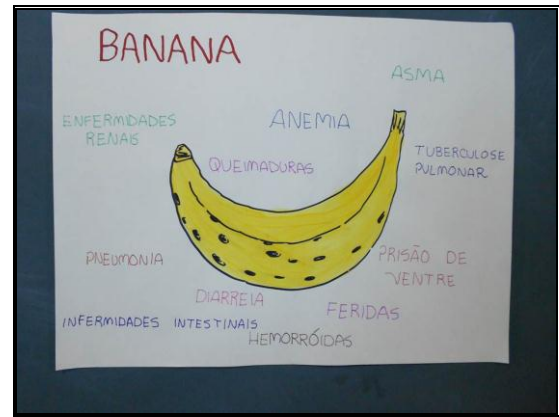 BANANA
ASMA
ENFERMIDADES
RENAIS
ANEMIA
QUEIMADURAS
TUBERCULOSE
PULMONAR
PNEUMONIA
PRISÃO DE
VENTRE
DIARREIA
FERIDAS
INFERMIDADES INTESTINAIS
HEMORRÓIDAS